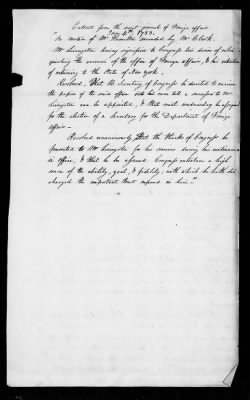 Extract from the secret journals of Foreign affairs
June 4th 1783.
"On motion of Mr Hamilton seconded by Mr Clark.
Mr Livingston having signified to Congress his desire of relin-
quishing the exercise of the office of Foreign Affairs, & his intention
of returning to the State of New York,
Resolved, That the Secretary of Congress be directed to receive
the papers of the said office into his care till a successor to Mr
Livingston can be appointed, & that next wednesday be assigned
for the election of a Secretary for the Department of Foreign
affairs —
Resolved unanimously, That the thanks of Congress be
presented to Mr Livingston for his services during his continuance
in office, & that he be assured Congress entertain a high
sense of the ability, zeal, & fidelity, with which he hath dis-
charged the important trust reposed in him."